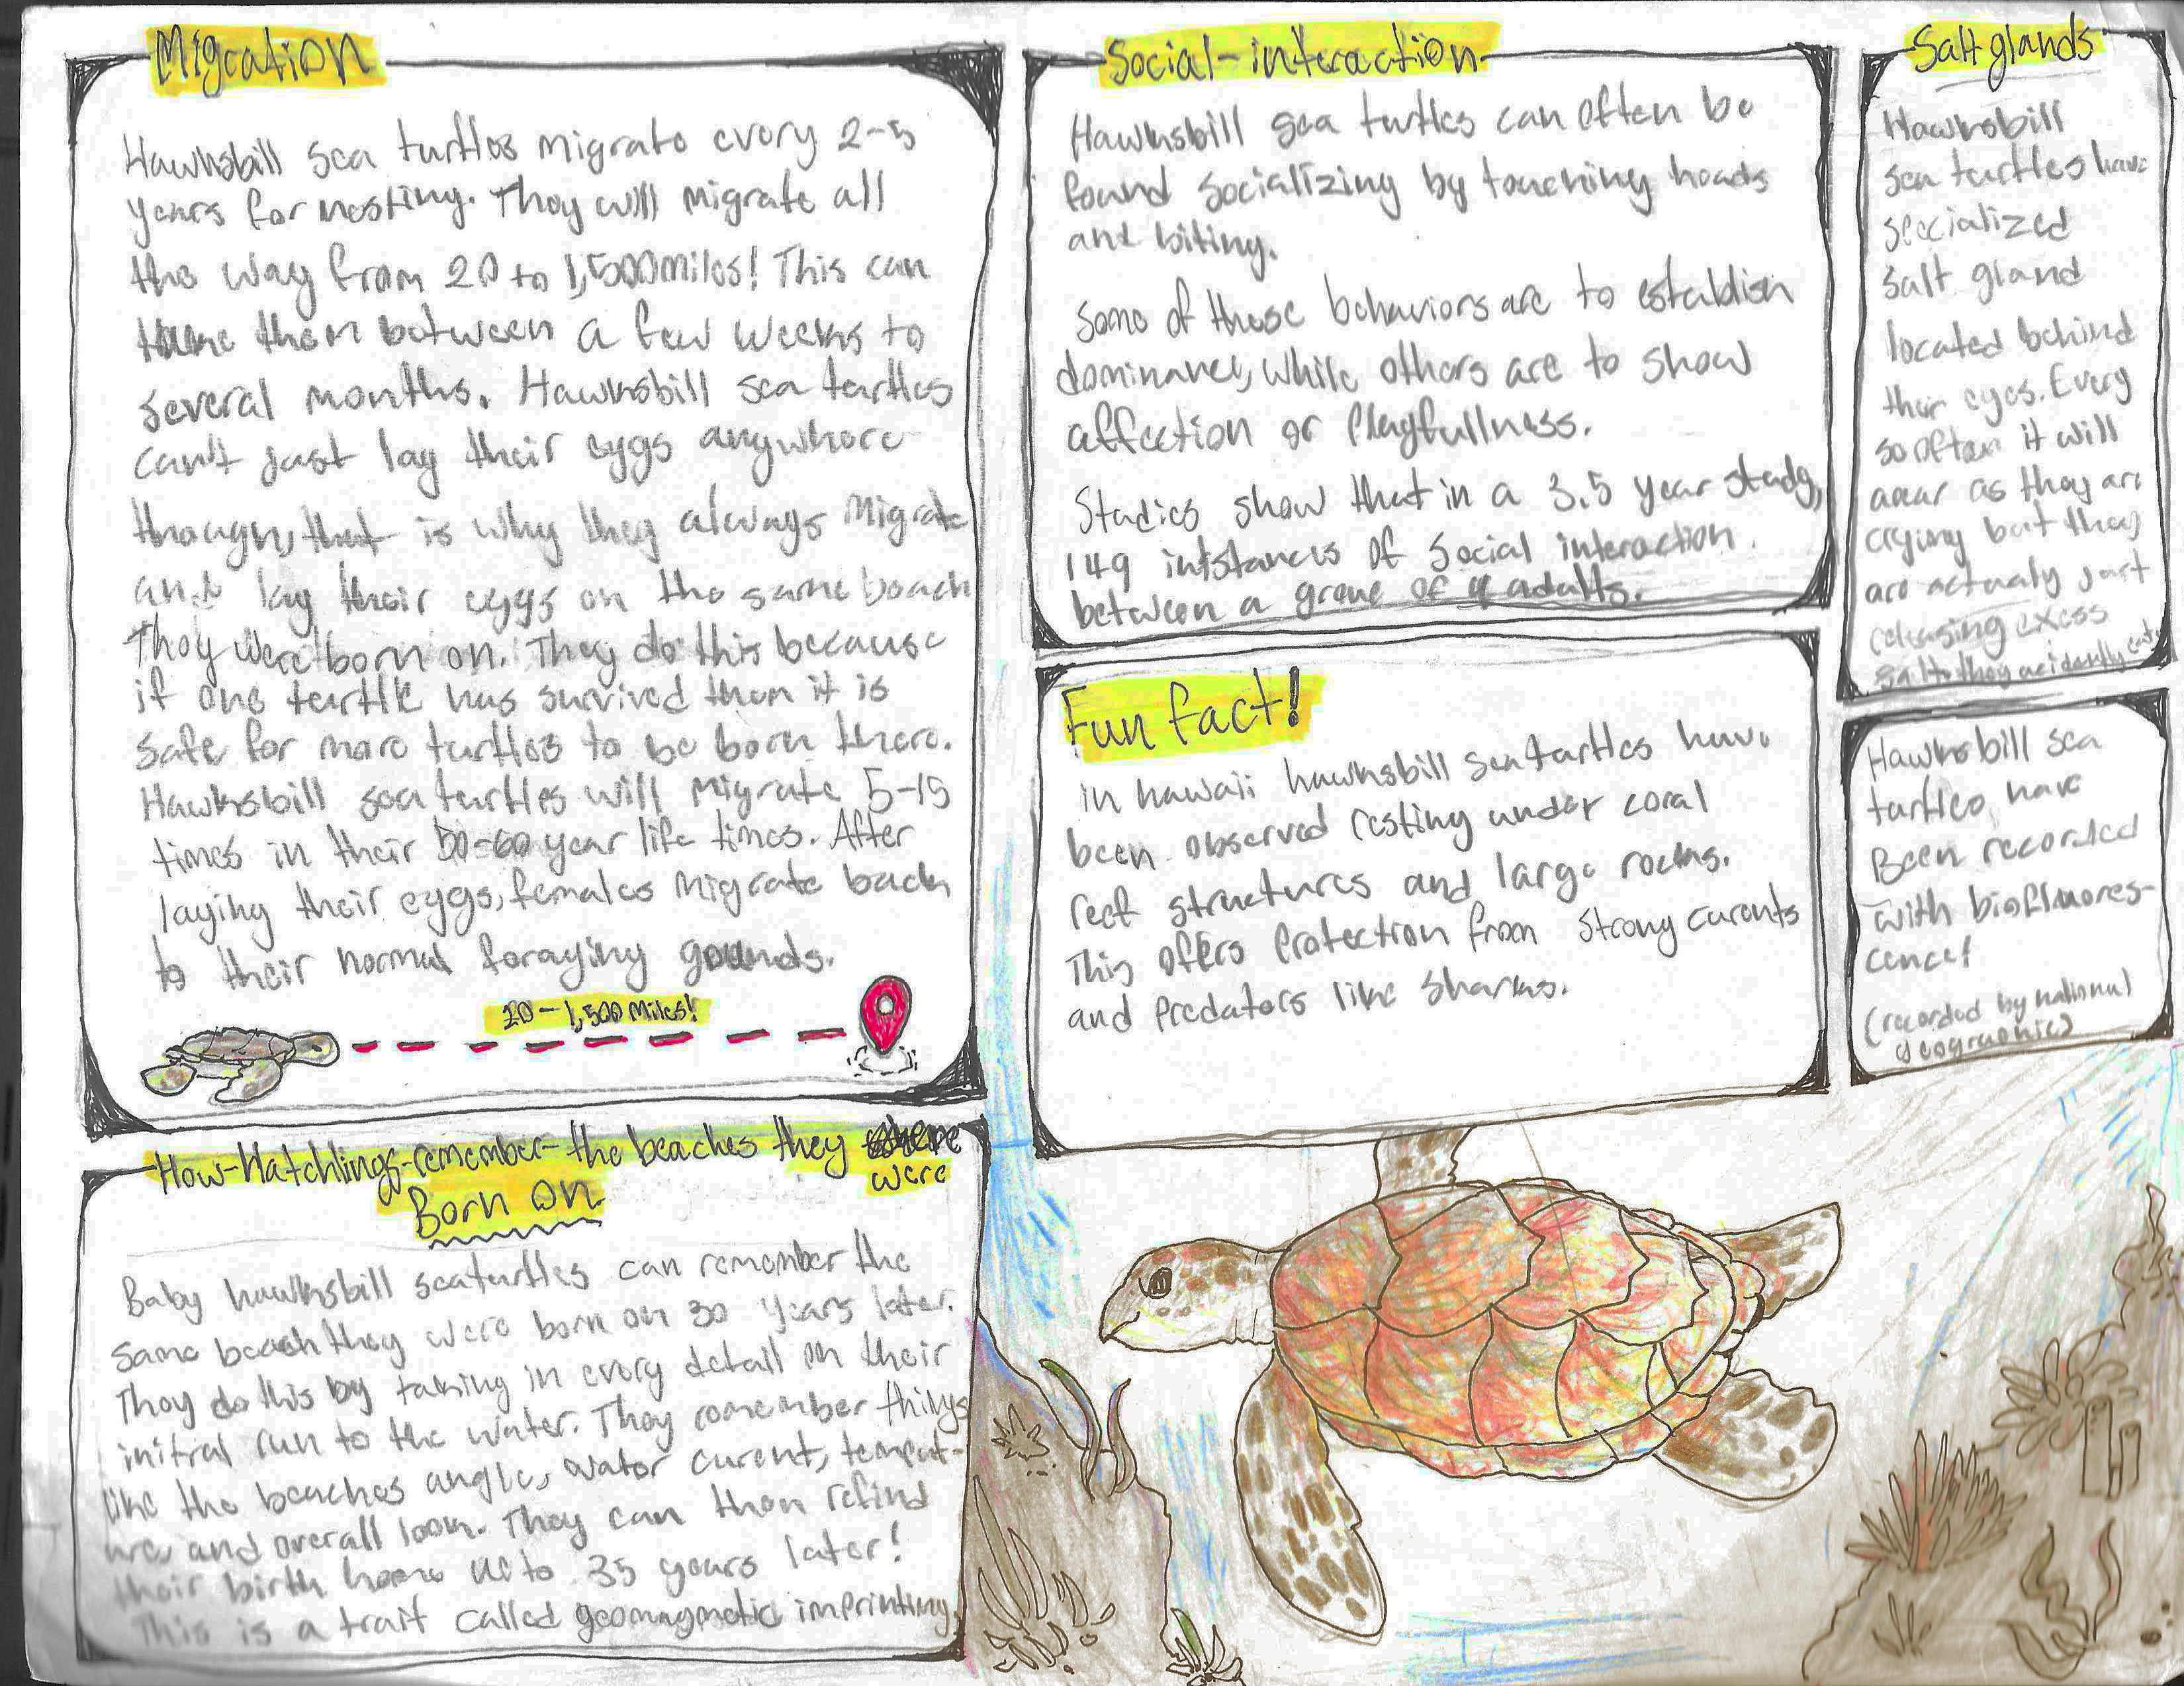 Migration
Hawksbill sea turtles migrate every 2-5
years for nesting. They will migrate all
the way from 20 to 1,500 miles! This can
take them between a few weeks to
several months. Hawksbill sea turtles
can't just lay their eggs anywhere
though, that is why they always migrate
and lay their eggs on the same beach
They were born on. They do this because
if one turtle has survived then it is
safe for more turtles to be born there.
Hawksbill sea turtles will migrate 5-15
times in their 50-60 year life times. After
laying their eggs, females migrate back
to their normal foraging gounds.
20-1,500 Miles!
How-Hatchlings-remember-the beaches they
were
Born on
Baby hawksbill seaturtles can remember the
same beach they were born on 30 years later.
They do this by taking in every detail on their
initial run to the water. They remember things
like the beaches angle, water curent, tempat-
ure, and overall look. They can then refind
their birth home up to 35 years later!
This is a trait called geomagnetic imprinting.
Social-interaction
Hawksbill sea turtles can often be
found socializing by touching heads
and biting.
Some of these behaviors are to establish
dominance, while others are to show
affection or Playfullness.
Studies show that in a 3.5 year study,
149 intstances of Social interaction
between a group of 4 adults.
Fun fact!
in hawaii hawksbill sea turtles have
been observed resting under coral
reef structures and large rocks.
This offers Protection from strong curents
and Predators like sharks.
Salt glands
Hawksbill
sea turtles have
specialized
salt gland
located behind
their eyes. Every
so often it will
apear as they are
crying but they
are actualy just
releasing exess
salt they acidently eat
Hawksbill sea
turtles have
Been recorded
with biofluores-
cence!
(recorded by national
geographic)